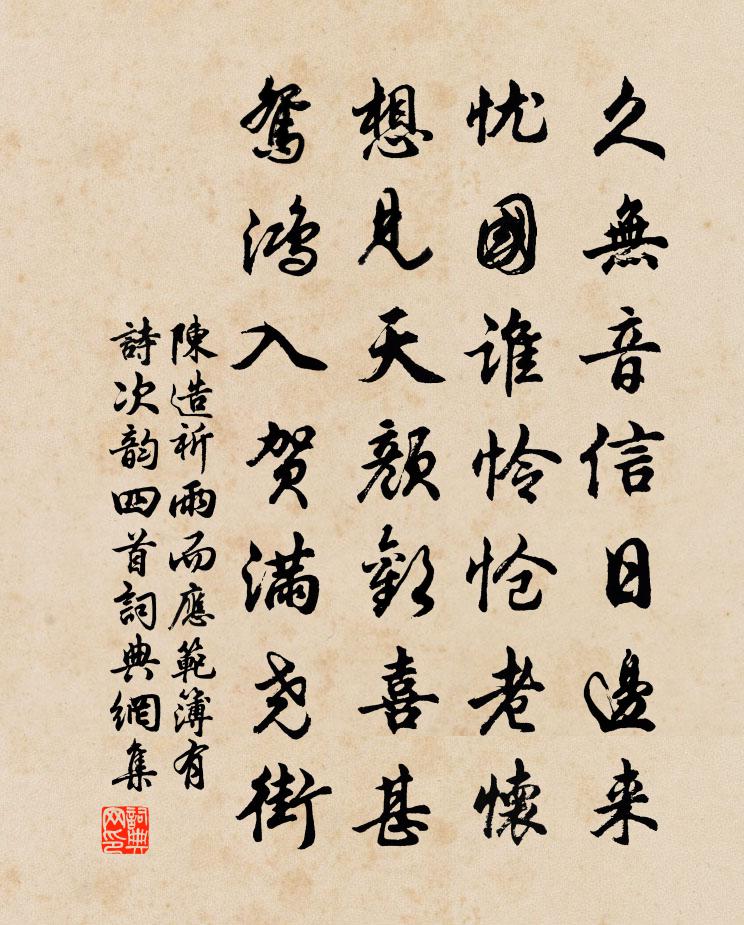 久無音信日邊来
忧國谁怜怆老懷
想見天颜歡喜甚
鴛鴻入贺满尧街
陳造祈雨而應範簿有
詩次韵四首詞典網集
詞典网印